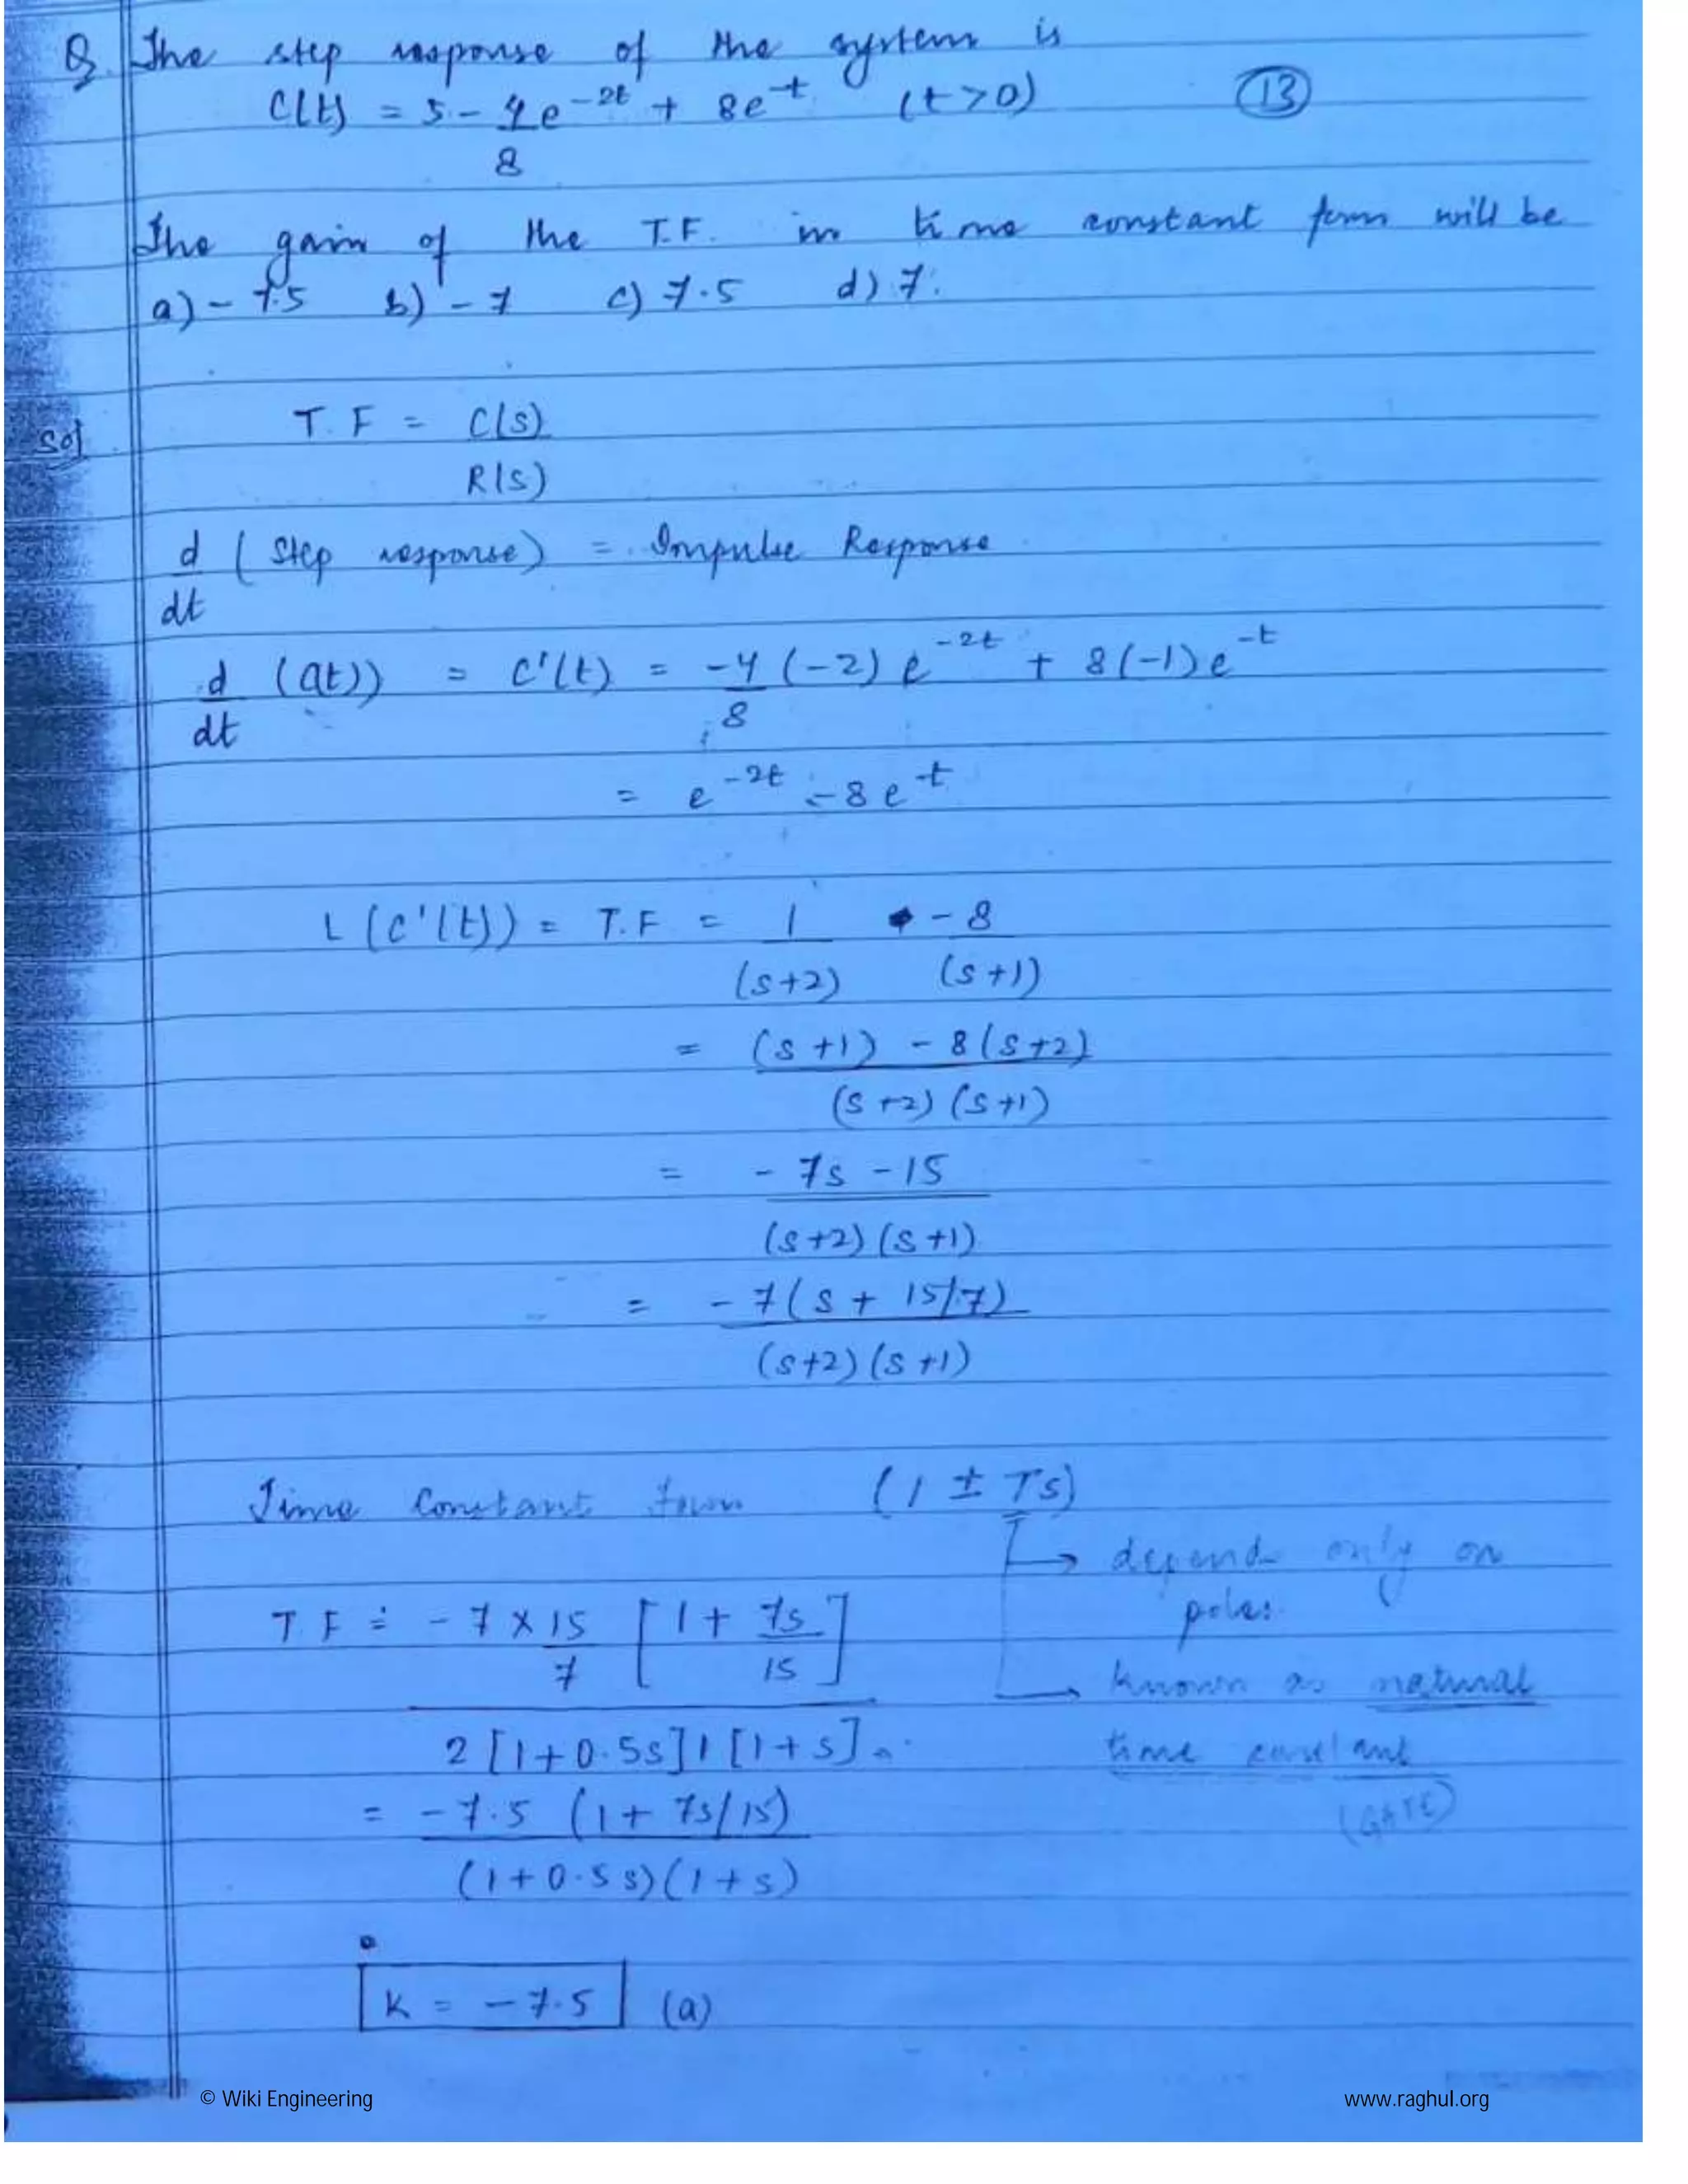 Q. The step response of the system is
C(t) = 5 - 4/8 e^-2t + 8e^-t (t>0) (13)
The gain of the T.F. in time constant form will be
a) - 7.5 b) - 7 c) 7.5 d) 7.
Sol T.F = C(s)/R(s)
d/dt (Step response) = Impulse Response
d/dt (C(t)) = C'(t) = -4/8 (-2) e^-2t + 8(-1)e^-t
= e^-2t - 8e^-t
L(C'(t)) = T.F = 1/(s+2) - 8/(s+1)
= (s+1) - 8(s+2) / (s+2)(s+1)
= - 7s - 15 / (s+2)(s+1)
= - 7(s + 15/7) / (s+2)(s+1)
Time Constant form (1 ± Ts)
→ depend only on
poles.
T.F = - 7 x 15/7 [1 + 7s/15] / 2[1+0.5s]1[1+s]
→ known as natural
time constant
(GATE)
= -7.5 (1 + 7s/15) / (1+0.5s)(1+s)
K = - 7.5 (a)
© Wiki Engineering www.raghul.org